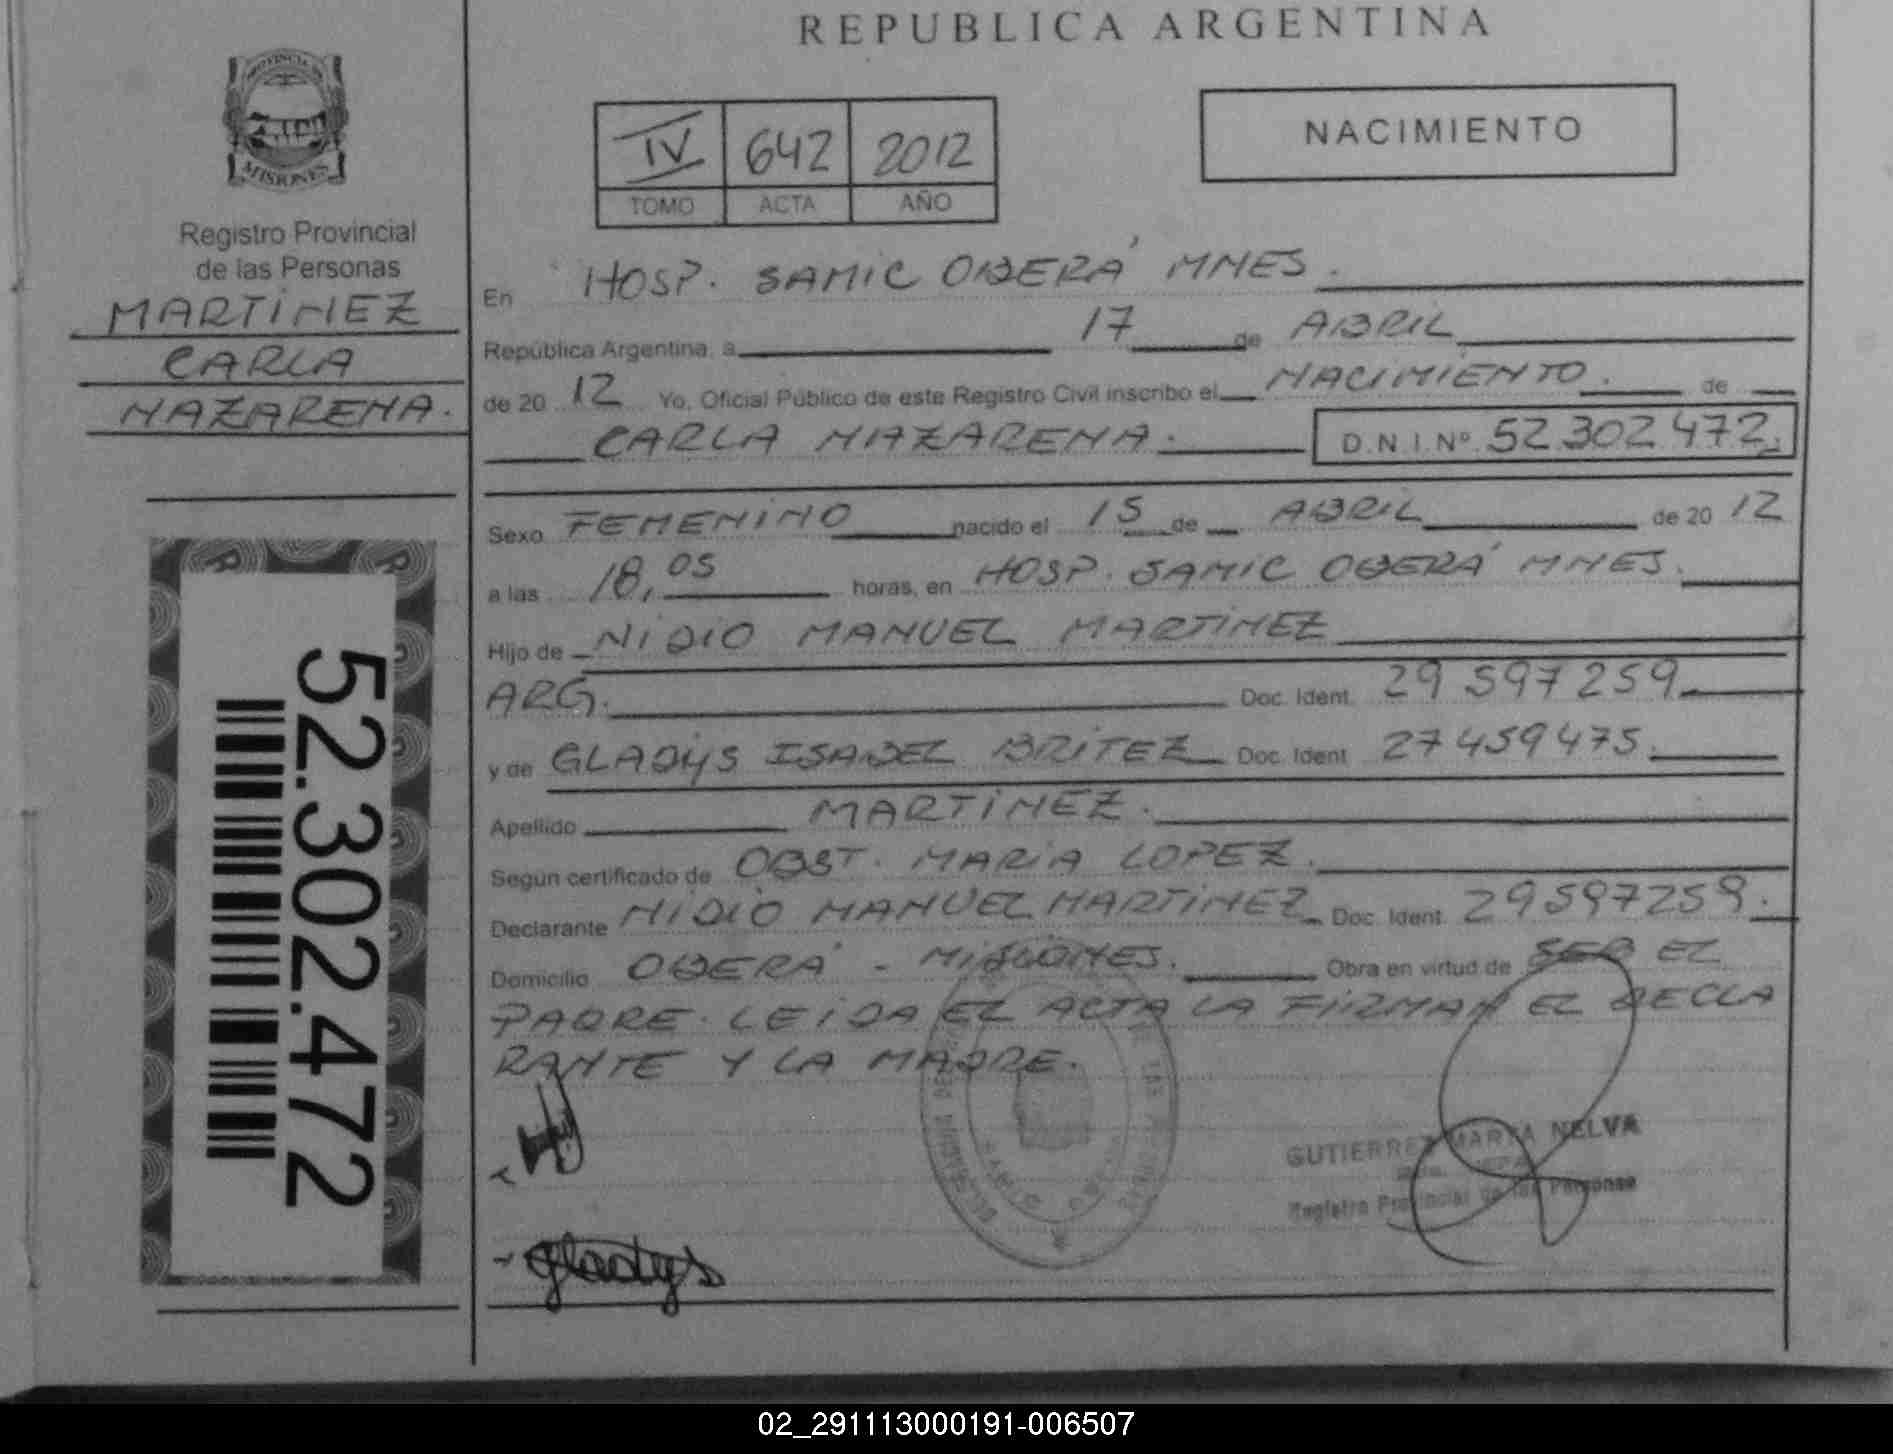 REPUBLICA ARGENTINA
PROVINCIA DE
MISIONES
Registro Provincial
de las Personas
MARTINEZ
CARLA
NAZARENA.
52.302.472
IV 642 2012
TOMO ACTA AÑO
NACIMIENTO
En HOSP. SAMIC OBERÁ MNES.
República Argentina, a 17 de ABRIL
de 20 12 Yo, Oficial Público de este Registro Civil inscribo el NACIMIENTO. de
CARLA NAZARENA. D.N.I. Nº 52.302.472.
Sexo FEMENINO nacido el 15 de ABRIL de 20 12
a las 18,05 horas, en HOSP. SAMIC OBERÁ MNES.
Hijo de NIDIO MANUEL MARTINEZ
ARG. Doc. Ident. 29 597 259
y de GLADYS ISABEL BRITEZ Doc. Ident 27 459 475.
Apellido MARTINEZ.
Según certificado de OBST. MARIA LOPEZ.
Declarante NIDIO MANUEL MARTINEZ Doc. Ident. 29597259.
Domicilio OBERÁ - MISIONES. Obra en virtud de SER EL
PADRE. LEIDA EL ACTA LA FIRMAN EL DECLA
RANTE Y LA MADRE.
GUTIERREZ MARTA NELVA
Registro Provincial de las Personas
Gladys
02_291113000191-006507